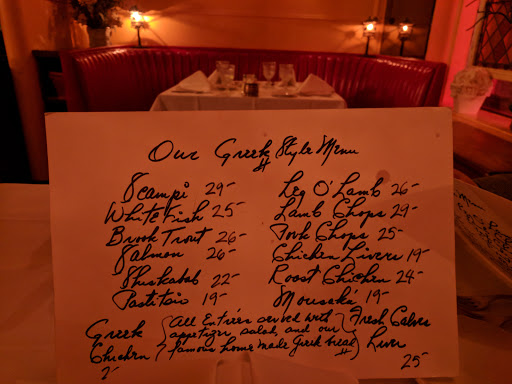 Our Greek Style Menu
Scampi 29-
White Fish 25-
Brook Trout 26-
Salmon 26-
Shishkabob 22-
Pastitsio 19-
Leg O'Lamb 26-
Lamb Chops 29-
Pork Chops 25-
Chicken Livers 19-
Roast Chicken 24-
Mousaka' 19-
Greek Chicken
All Entrees served with
appetizer, salad, and our
famous home made Greek bread
Fresh Calves
Liver
25-